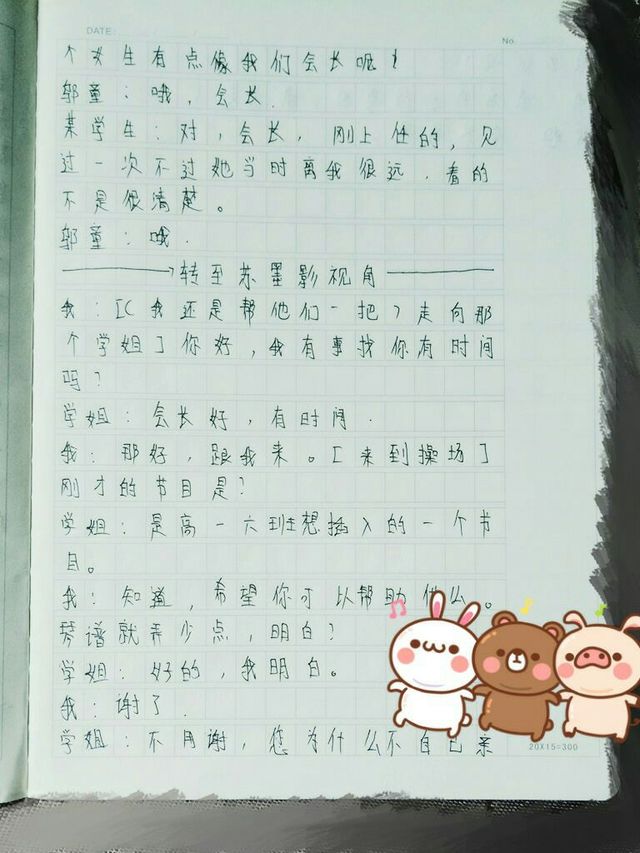 DATE:
No
个女生有点像我们会长呃！
邬童：哦，会长.
某学生：对，会长，刚上任的，见
过一次不过她当时离我很远.看的
不是很清楚。
邬童：哦.
转至苏墨影视角
我：[（我还是帮他们一把）走向那
个学姐]你好，我有事找你有时间
吗？
学姐：会长好，有时间.
我：那好，跟我来。[来到操场]
刚才的节目是？
学姐：是高一六班想插入的一个节
目。
我：知道，希望你可以帮助他么。
琴谱就弄少点，明白？
学姐：好的，我明白。
我：谢了.
学姐：不用谢，您为什么不自己亲
20X15=300